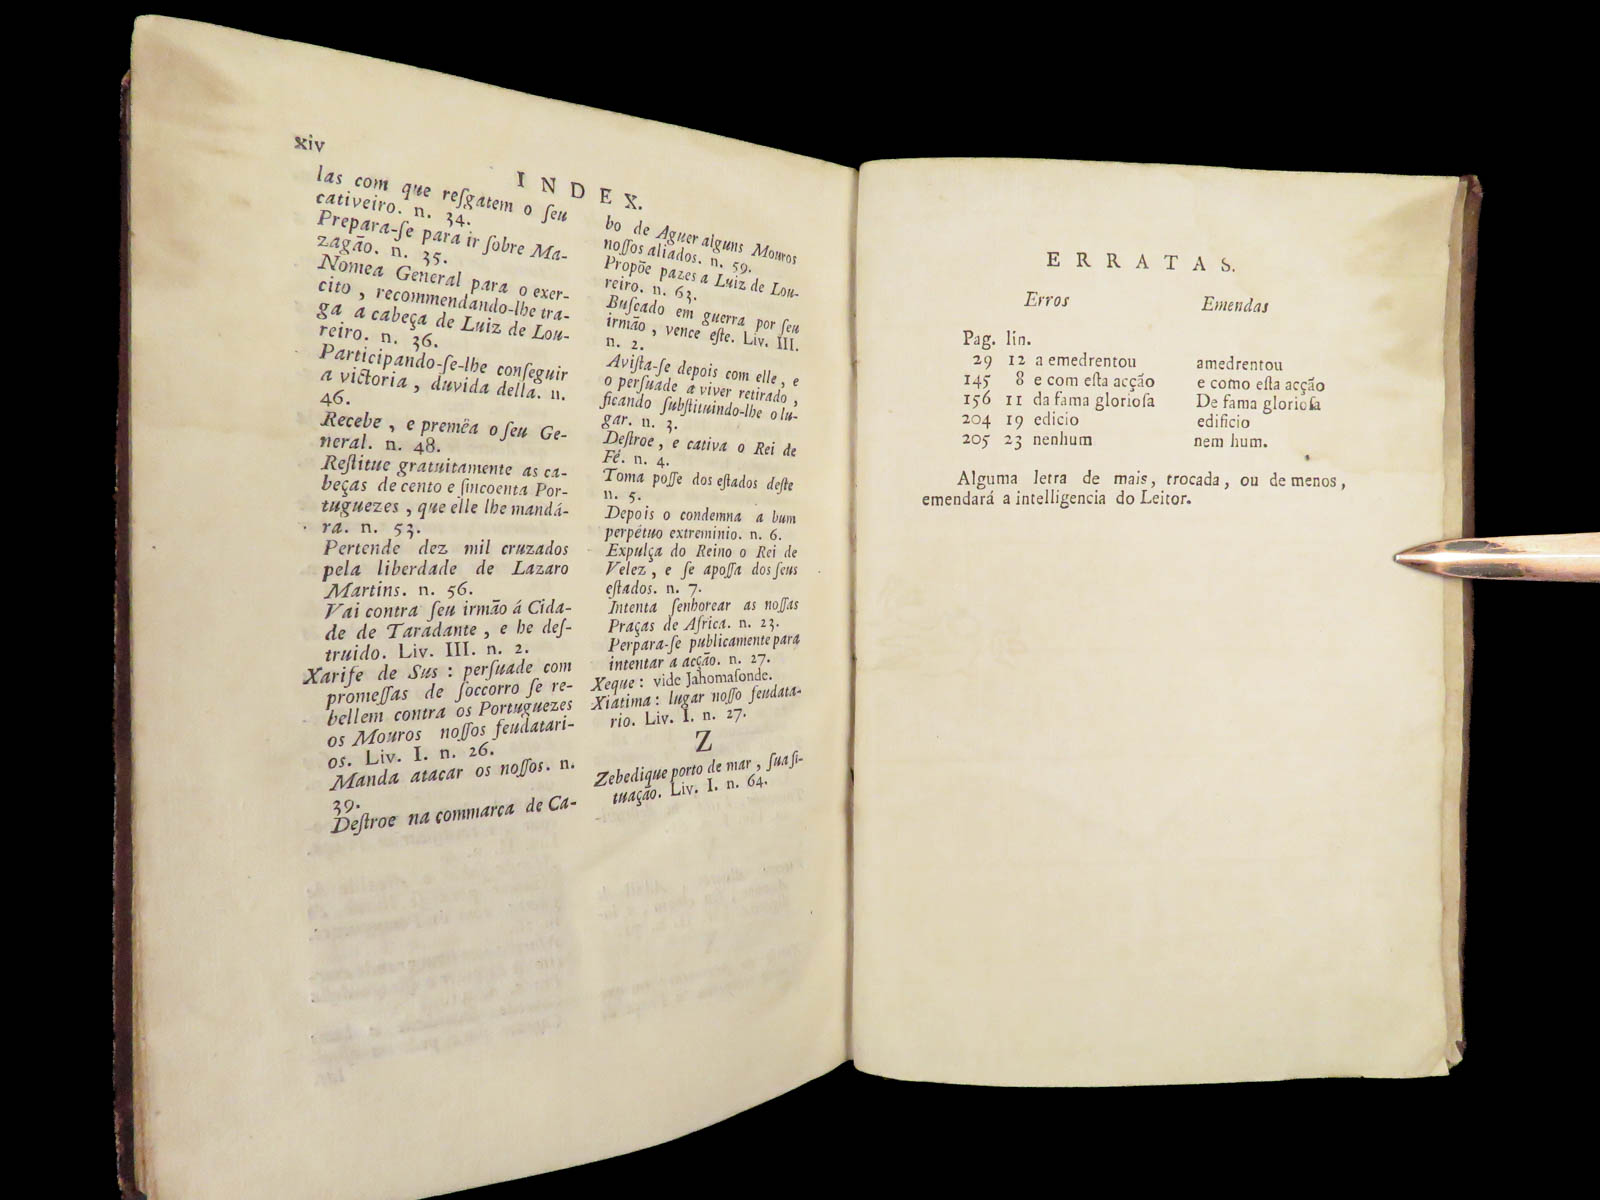 xiv
INDEX.
las com que reſgatem o ſeu
cativeiro. n. 34.
Prepara-ſe para ir ſobre Ma-
zagão. n. 35.
Nomea General para o exer-
cito , recommendando-lhe tra-
ga a cabeça de Luiz de Lou-
reiro. n. 36.
Participando-ſe-lhe conſeguir
a victoria , duvida della. n.
46.
Recebe , e premêa o ſeu Ge-
neral. n. 48.
Reſtitue gratuitamente as ca-
beças de cento e ſincoenta Por-
tuguezes , que elle lhe mandá-
ra. n. 53.
Pertende dez mil cruzados
pela liberdade de Lazaro
Martins. n. 56.
Vai contra ſeu irmão á Cida-
de de Taradante , e he deſ-
truido. Liv. III. n. 2.
Xarife de Sus : perſuade com
promeſſas de ſoccorro ſe re-
bellem contra os Portuguezes
os Mouros noſſos feudatari-
os. Liv. I. n. 26.
Manda atacar os noſſos. n.
39.
Deſtroe na commarca de Ca-
bo de Aguer alguns Mouros
noſſos aliados. n. 59.
Propõe pazes a Luiz de Lou-
reiro. n. 63.
Buſcado em guerra por ſeu
irmão , vence eſte. Liv. III.
n. 2.
Aviſta-ſe depois com elle , e
o perſuade a viver retirado ,
ficando ſubſtituindo-lhe o lu-
gar. n. 3.
Deſtroe , e cativa o Rei de
Fé. n. 4.
Toma poſſe dos eſtados deſte
n. 5.
Depois o condemna a hum
perpétuo extreminio. n. 6.
Expulça do Reino o Rei de
Velez , e ſe apoſſa dos ſeus
eſtados. n. 7.
Intenta ſenhorear as noſſas
Praças de Africa. n. 23.
Perpara-ſe publicamente para
intentar a acção. n. 27.
Xeque : vide Jahomaſonde.
Xiatima : lugar noſſo feudata-
rio. Liv. I. n. 27.
Z
Zebedique porto de mar , ſua ſi-
tuação. Liv. I. n. 64.
ERRATAS.
Erros Emendas
Pag. lin.
29 12 a emedrentou amedrentou
145 8 e com eſta acção e como eſta acção
156 11 da fama glorioſa De fama glorioſa
204 19 edicio edificio
205 23 nenhum nem hum.
Alguma letra de mais, trocada, ou de menos,
emendará a intelligencia do Leitor.